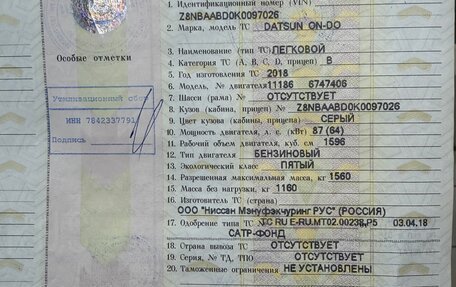 1. Идентификационный номер (VIN)
Z8NBAABD0K0097026
2. Марка, модель ТС DATSUN ON-DO
3. Наименование (тип ТС) ЛЕГКОВОЙ
4. Категория ТС (А, В, С, D, прицеп) В
5. Год изготовления ТС 2018
6. Модель, № двигателя 11186 6747406
7. Шасси (рама) № ОТСУТСТВУЕТ
8. Кузов (кабина, прицеп) № Z8NBAABD0K0097026
9. Цвет кузова (кабины, прицепа) СЕРЫЙ
10. Мощность двигателя, л. с. (кВт) 87 (64)
11. Рабочий объем двигателя, куб. см 1596
12. Тип двигателя БЕНЗИНОВЫЙ
13. Экологический класс ПЯТЫЙ
14. Разрешенная максимальная масса, кг 1560
15. Масса без нагрузки, кг 1160
16. Изготовитель ТС (страна)
ООО "Ниссан Мэнуфэкчуринг РУС" (РОССИЯ)
17. Одобрение типа ТС № ТС RU E-RU.MT02.00238.P5 03.04.18
САТР-ФОНД
18. Страна вывоза ТС ОТСУТСТВУЕТ
19. Серия, № ТД, ТПО ОТСУТСТВУЕТ
20. Таможенные ограничения НЕ УСТАНОВЛЕНЫ
Особые отметки
Утилизационный сбор
ИНН 7842337791
Подпись